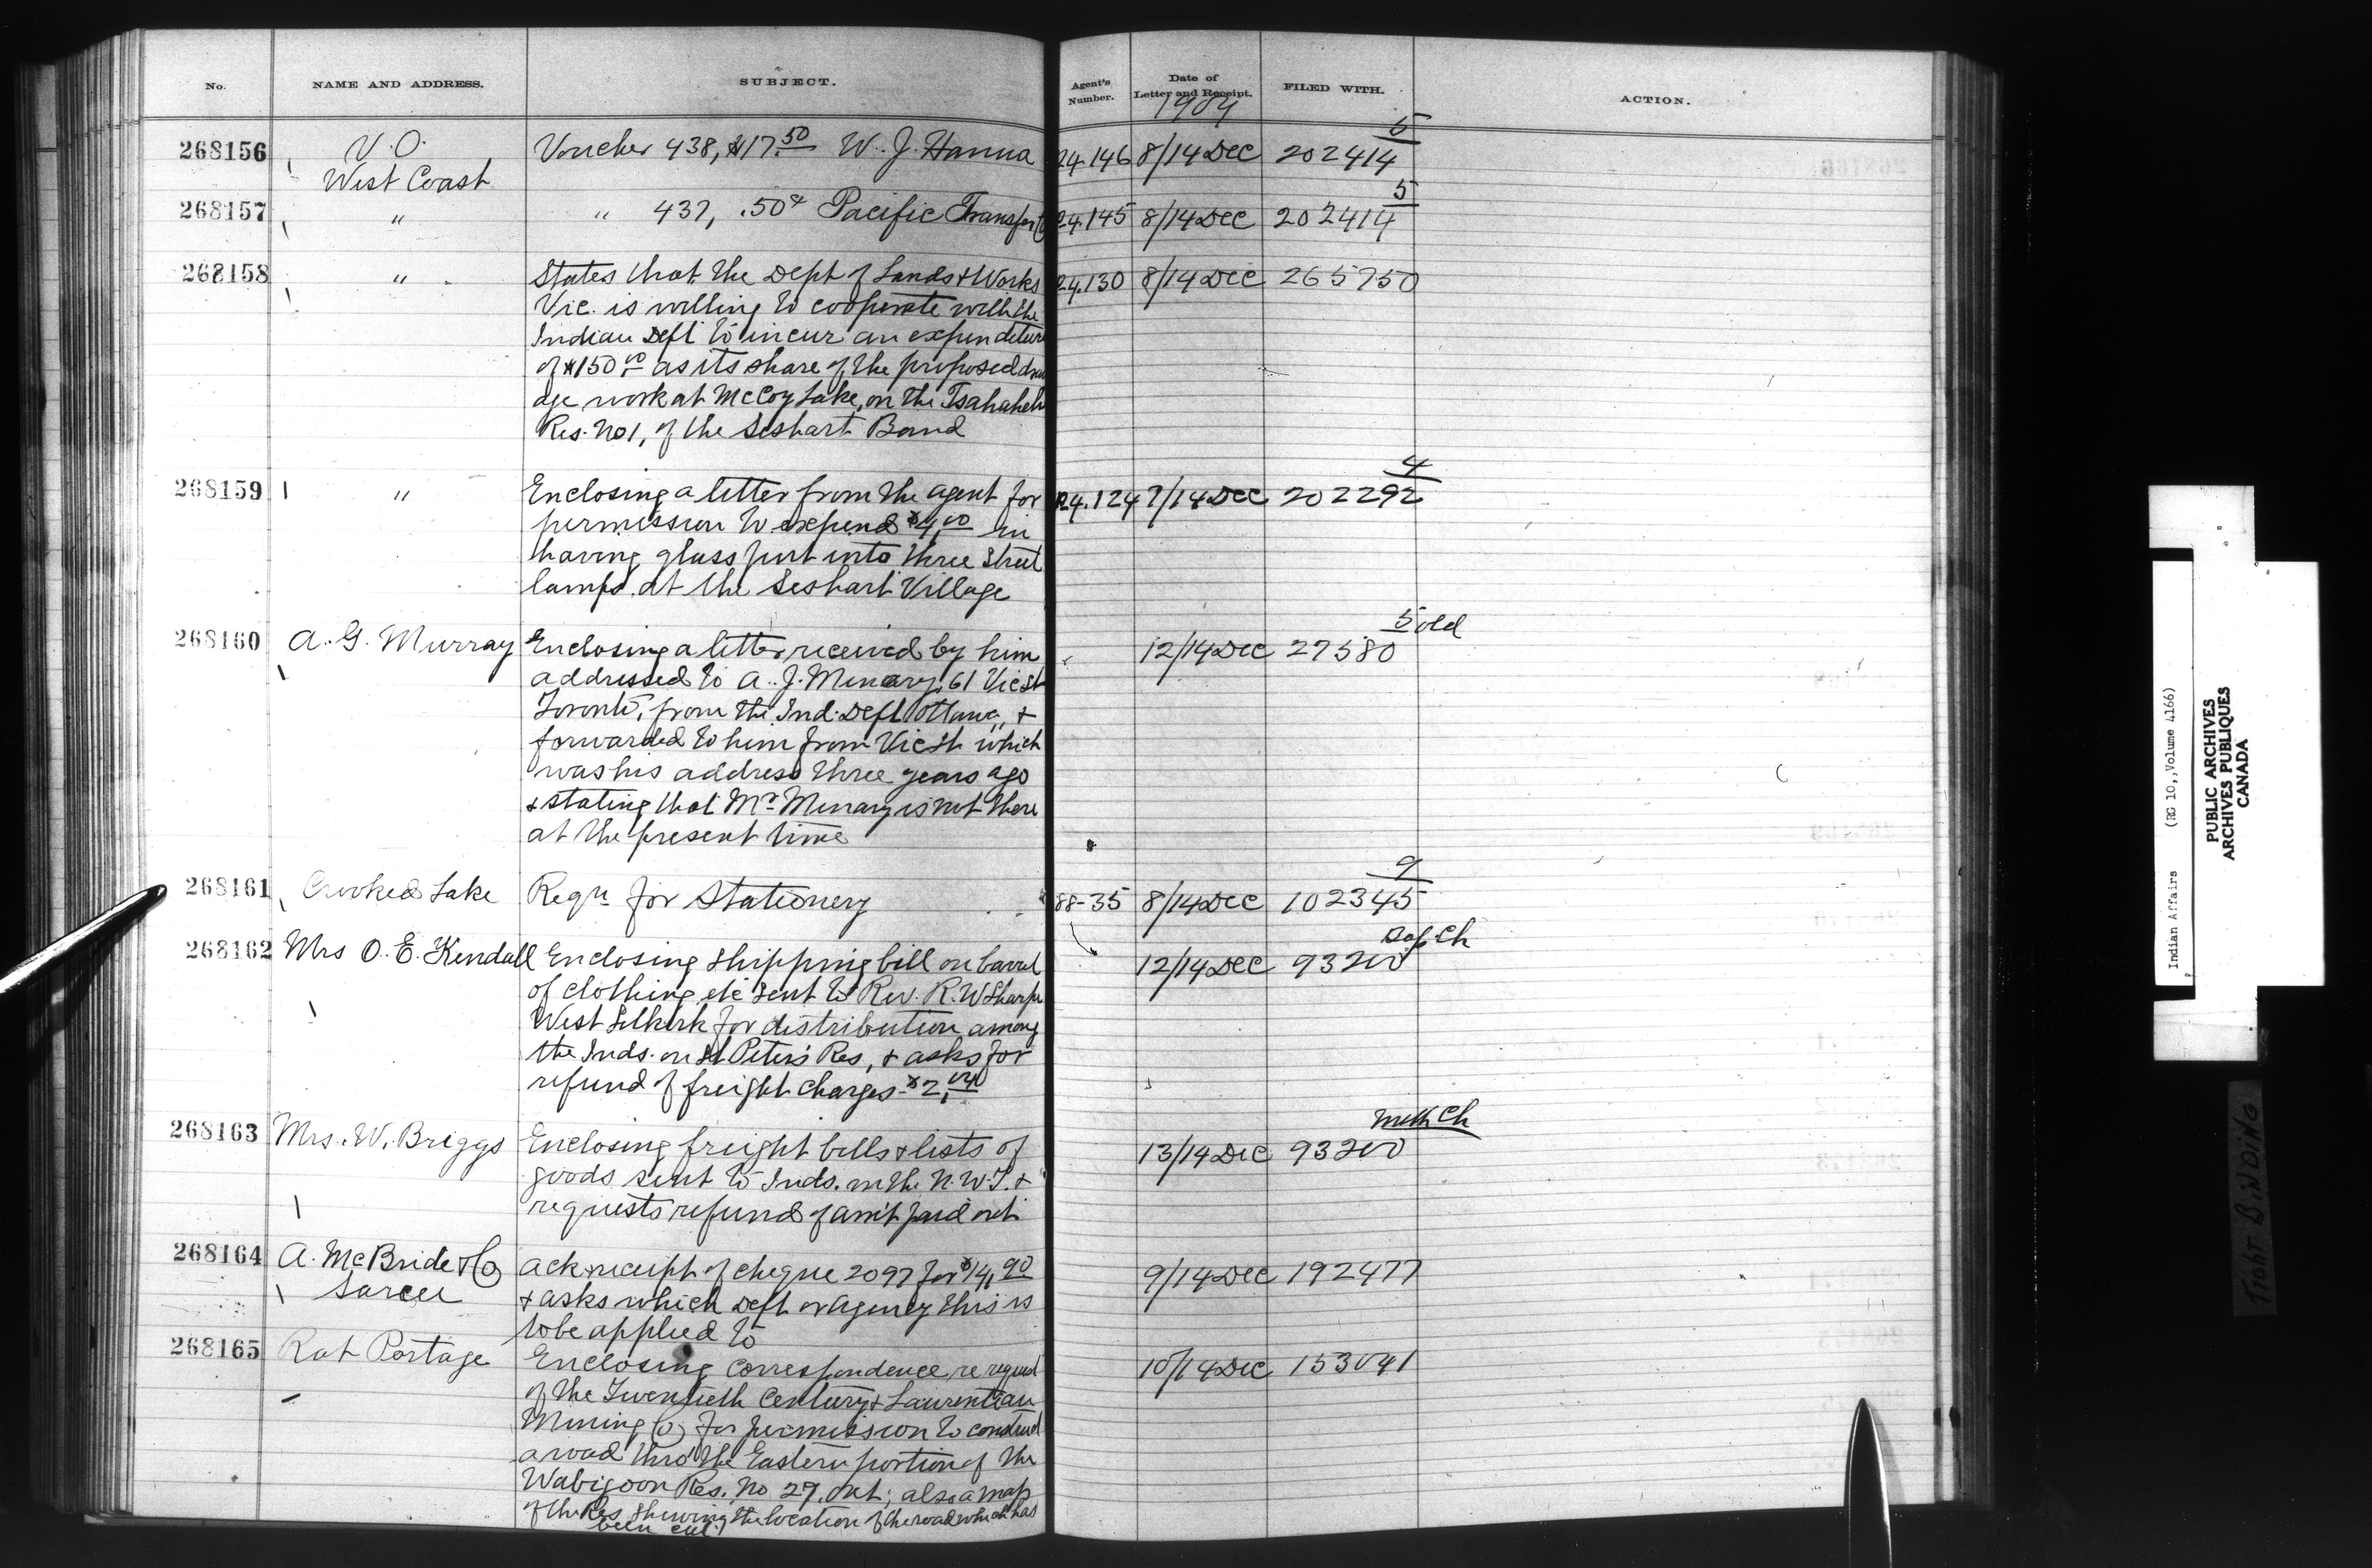 No. NAME AND ADDRESS. SUBJECT. Agent's Number. Date of Letter and Receipt. FILED WITH. ACTION.
1904
268156 V.O. Voucher 438, $17.50 W. J. Hanna 24.146 8/14 Dec 202414 5
West Coast
268157 " " 437, .50¢ Pacific Transfer Co 24.145 8/14 Dec 202414 5
268158 " States that the Dept of Lands & Works 24.130 8/14 Dec 265750
Vic. is willing to cooperate with the
Indian Dept to incur an expenditure
of $150.00 as its share of the proposed drain
age work at McCoy Lake, on the Tsahaheh
Res. No 1, of the Seshart Band
268159 " Enclosing a letter from the agent for 24.124 7/14 Dec 202292 4
permission to expend $4.00 in
having glass put into three street
lamps at the Seshart Village
268160 A. G. Murray Enclosing a letter received by him 12/14 Dec 27580 5 old
addressed to A. J. Menary, 61 Vic St
Toronto, from the Ind. Dept Ottawa, &
forwarded to him from Vic St which
was his address three years ago
& stating that Mr Menary is not there
at the present time
268161 Crooked Lake Reqn for Stationery 88-35 8/14 Dec 102345 9
268162 Mrs O. E. Kendall Enclosing shipping bill on barrel 12/14 Dec 93200 Bap. Ch
of clothing etc sent to Rev. R. W Sharpe
West Selkirk for distribution among
the Inds. on St Peter's Res, & asks for
refund of freight charges - $2.04
268163 Mrs. W. Briggs Enclosing freight bills & lists of 13/14 Dec 93200 Meth Ch
goods sent to Inds. in the N.W.T. &
requests refund of am't paid out
268164 A. McBride & Co ack receipt of cheque 2097 for $14.90 9/14 Dec 192477
Sarcee & asks which Dept or Agency this is
to be applied to
268165 Rat Portage Enclosing correspondence re request 10/14 Dec 153041
of the Twentieth Century & Laurentian
Mining Co for permission to construct
a road thro' the Eastern portion of the
Wabigoon Res. No 27. Ont; also a map
of the Res. showing the location of the road which has
been cut.
Indian Affairs (RG 10, Volume 4166)
PUBLIC ARCHIVES
ARCHIVES PUBLIQUES
CANADA
TIGHT BINDING